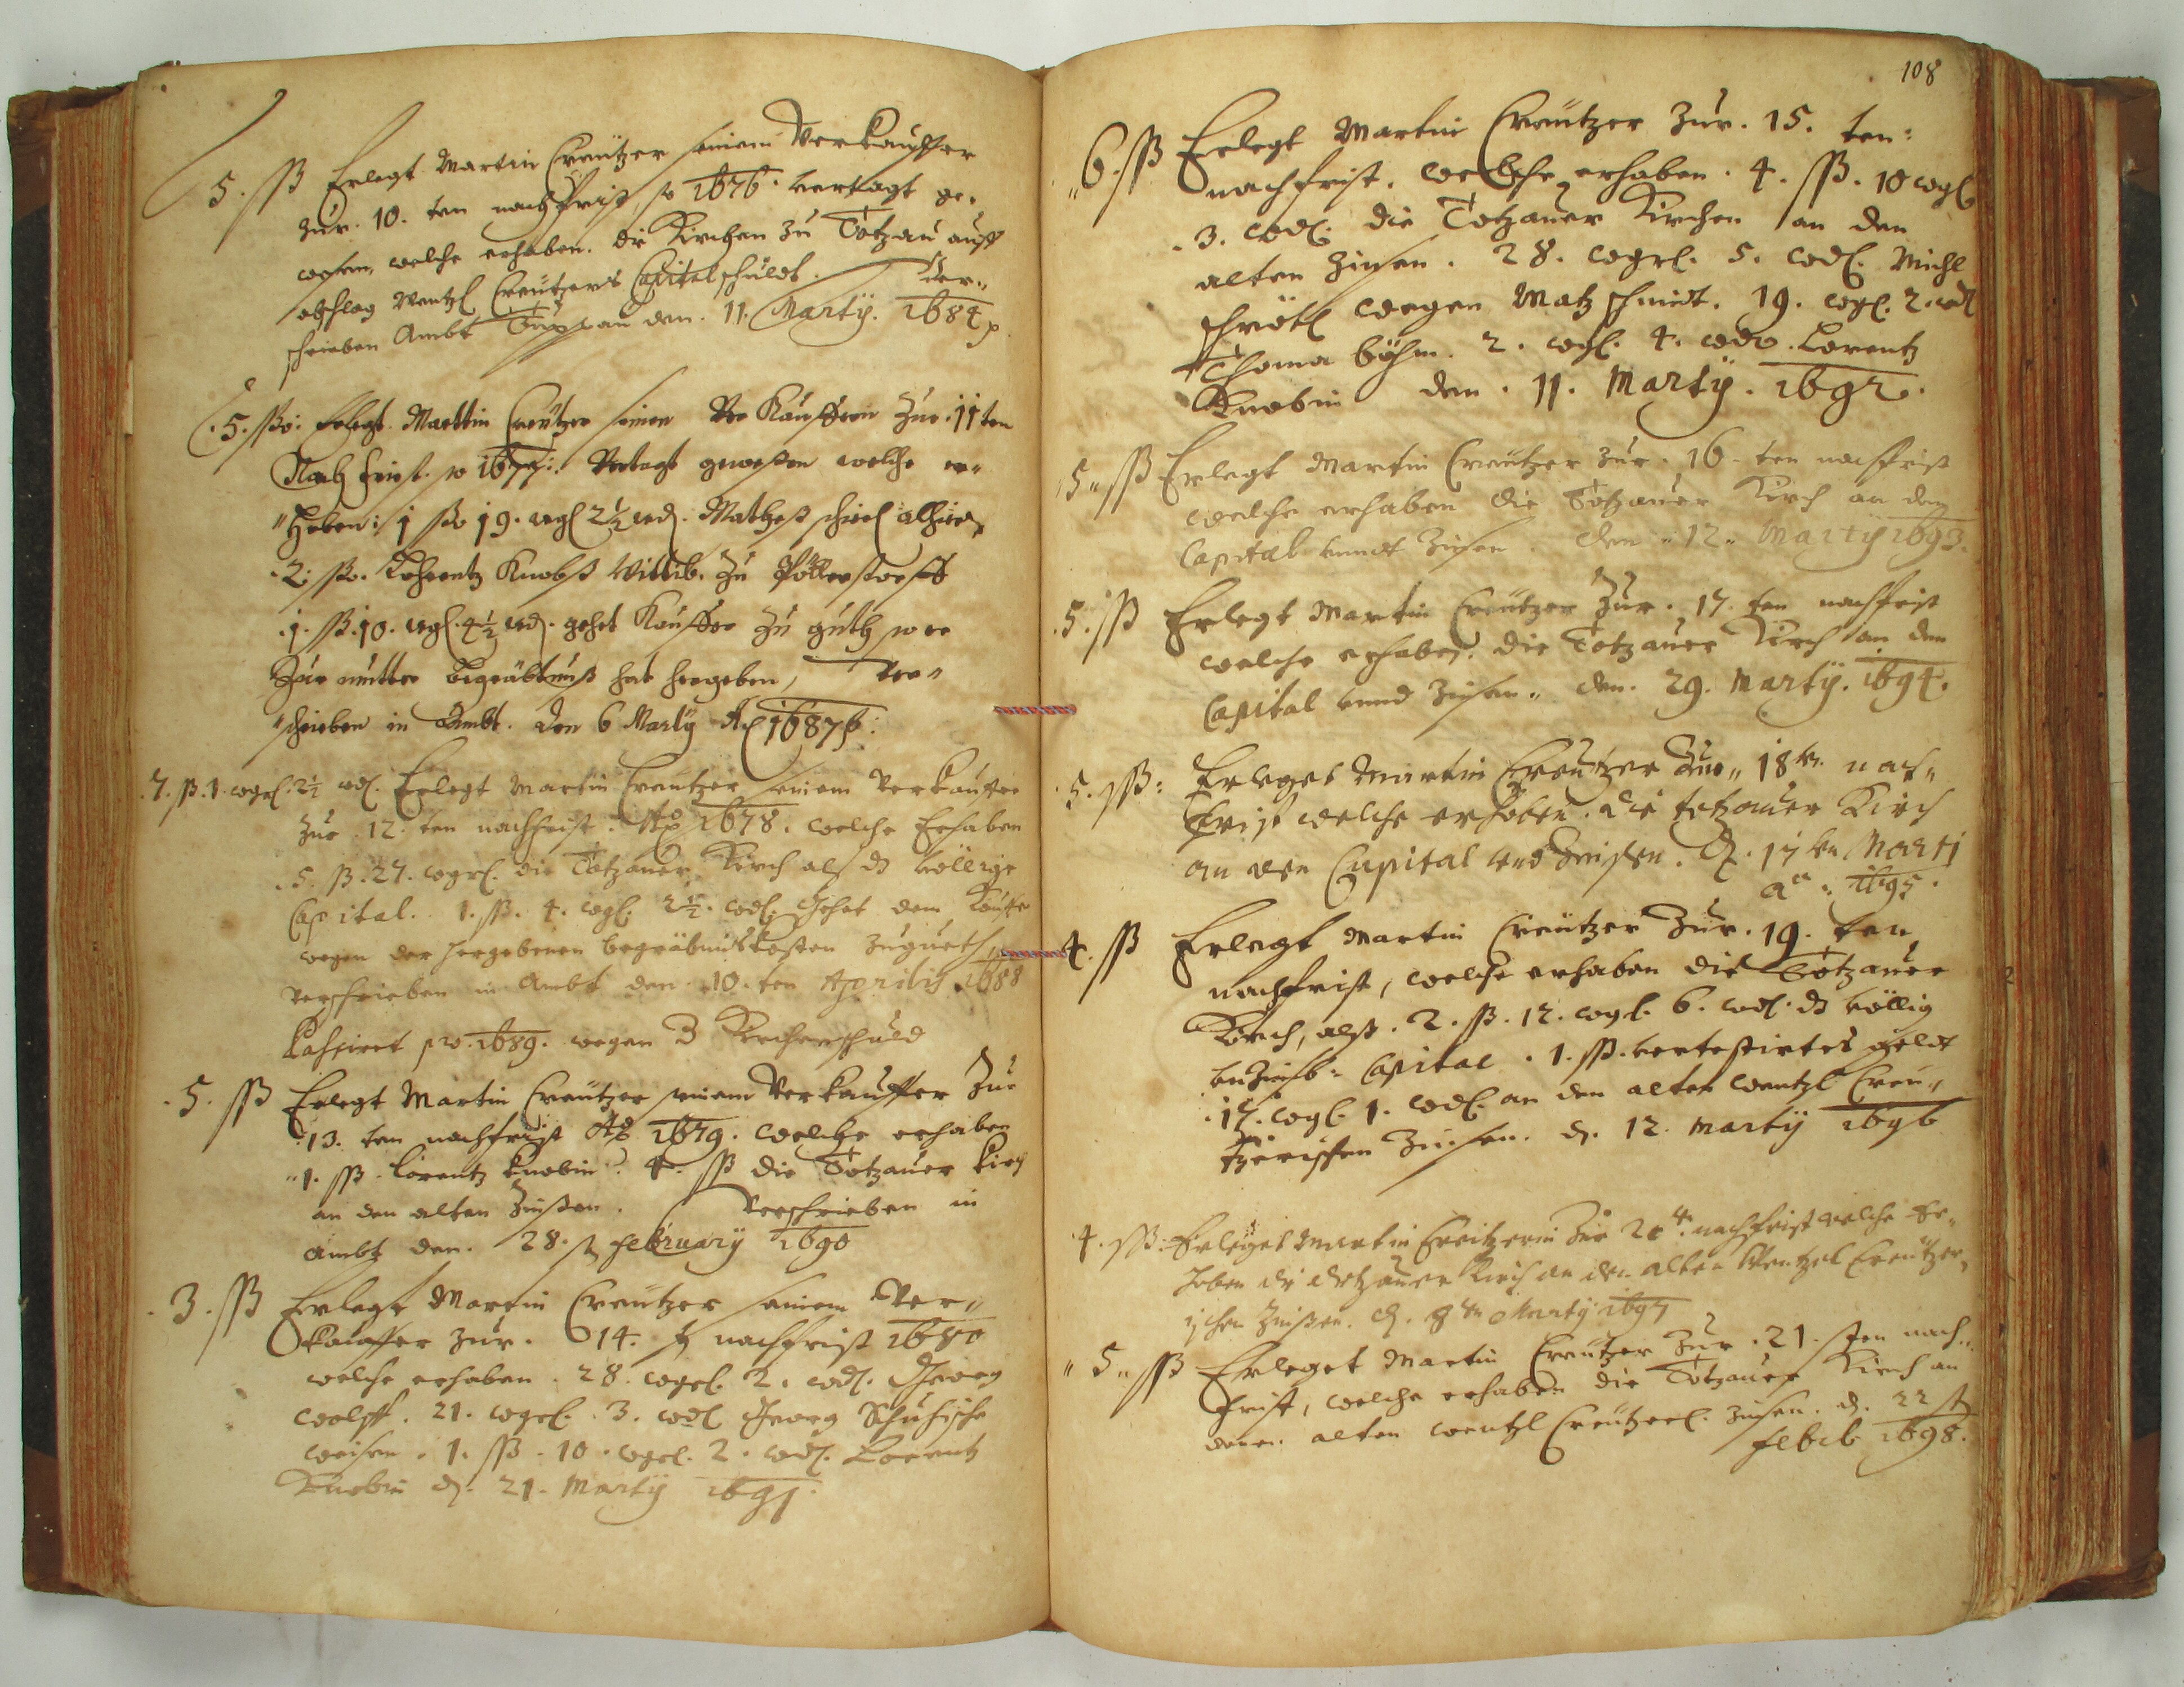 5. ßß Erlegt Martin Creützer seinem Verkauffer
zur. 10. ten nachfrist, so 1676. vertagt ge-
wesen, welche erhaben. die Kirchen zu Totzau auff
abschlag Wentzl Creützers Capital schuldt. Ver-
schrieben Ambt Duppau den. 11. Martÿ. 1684
.5. ßo: Erlegt. Marttin Creützer seinen Ver Kauffern Zur 11 ten
Nach frist. so 1677: Vertagt geweßen welche er-
"Heben: 1 ßo 19. wgl 2½ wd. Matheß schiel alhier,
.2: ßo. Lohrentz Knobß Wittib. zu
.1. ß. 10. wgl. 4½ wd. gehet Kauffer zu guth so er
Zur mutter begräbtnuß hat hergeben, Ver-
"schrieben in Ambt. den 6 Martÿ Ao 1687
.7. ß. 1. wgrl. 2½ wd. Erlegt Martin Creützer seinem Verkauffer
zur. 12. ten nachfrist. Ao 1678. welche Erhaben
.5. ß. 27. wgrl. die Totzauer Kirch alß dz völlige
Capital. 1. ß. 4. wgl. 2½. wd. Gehet dem Kauffer
wegen der hergebenen begräbnuskosten zugueth,
Verschrieben in Ambt den. 10. ten Aprilis 1688
Cassirt pro. 1689. wegen 3 Kirchenschuld
.5. ßß Erlegt Martin Creützer seinem Verkauffer Zur
.13. ten nachfrist Ao 1679. welche erhaben
"1. ßß. Lorentz Knobin. 4. ßß die Totzauer Kirch
an den alten Zinßen. Verschrieben in
Ambt den. 28. february 1690
.3. ßß Erlegt Martin Creützer seinem Ver-
kauffer zur. 14. nachfrist 1680
welche erhaben. 28. wgrl. 2. wd. Georg
Wolff. 21. wgrl. 3. wd Georg
weisen. 1. ßß. 10. wgrl. 2. wd. Lorentz
Knobin d. 21. Martÿ 1691.
108
"6. ßß Erlegt Martin Creützer zur. 15. ten:
nachfrist. welche erhaben. 4. ßß. 10 wgl
.3. wd. die Totzauer Kirchen an den
alten Zinsen. 28. wgrl. 5. wd. Michl
schrötl wegen Matz schmidt. 19. wgl. 2. wd
Thoma böhm. 2. wgl. 4. wd. Lorentz
Knobin den. 11. Martÿ. 1692.
"5" ßß Erlegt Martin Creützer zur. 16. ten nachfrist
welche erhaben die Totzauer Kirch an den
Capital unndt Zinsen. den "12" Martÿ 1693.
.5. ßß Erlegt Martin Creützer Zur. 17. ten nachfrist
welche erhaben. die Totzauer Kirch an dem
Capital unnd Zinsen. den. 29. Martÿ. 1694.
.5. ßß: Erleget Martin Creützer Zur "18 ten nach-
frist welche erhoben. die totzauer Kirch
an den Capital und Zinßen. d. 17 ten Marti
ao: 1695.
4. ßß Erlegt Martin Creützer Zur. 19. ten
nachfrist, welche erhaben die Totzauer
Kirch, alß. 2. ß. 12. wgl. 6. wd. dz völlig
Capital. 1. ßß. geldt
.17. wgl. 1. wd. an den alten wentzl Creü-
tzerischen Zinsen. d. 12. martÿ 1696
.4. ßß: Erleget Martin Creitzerin Zur 20 te. nachfrist welche Er-
heben die dotzauer Kirch an den alten Wentzel Creützer-
ischen Zinßen. d. 8 ten Martÿ 1697
"5" ßß Erleget Martin Creützer zur. 21. sten nach-
frist, welche erhaben die Totzauer Kirch an
denen alten wentzl Creützerl. Zinsen. d. 22
feb. 1698.